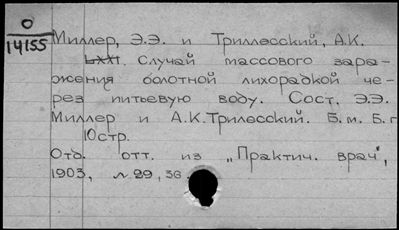 О
14155
Миллер, Э.Э. и Триллесский, А.К.
Случай массового зара-
жения болотной лихорадкой че-
рез питьевую воду. Сост. Э.Э.
Миллер и А.К.Трилесский. Б.м. Б.г
10стр.
Отд. отт. из „Практич. врач",
1903, №29, 36.